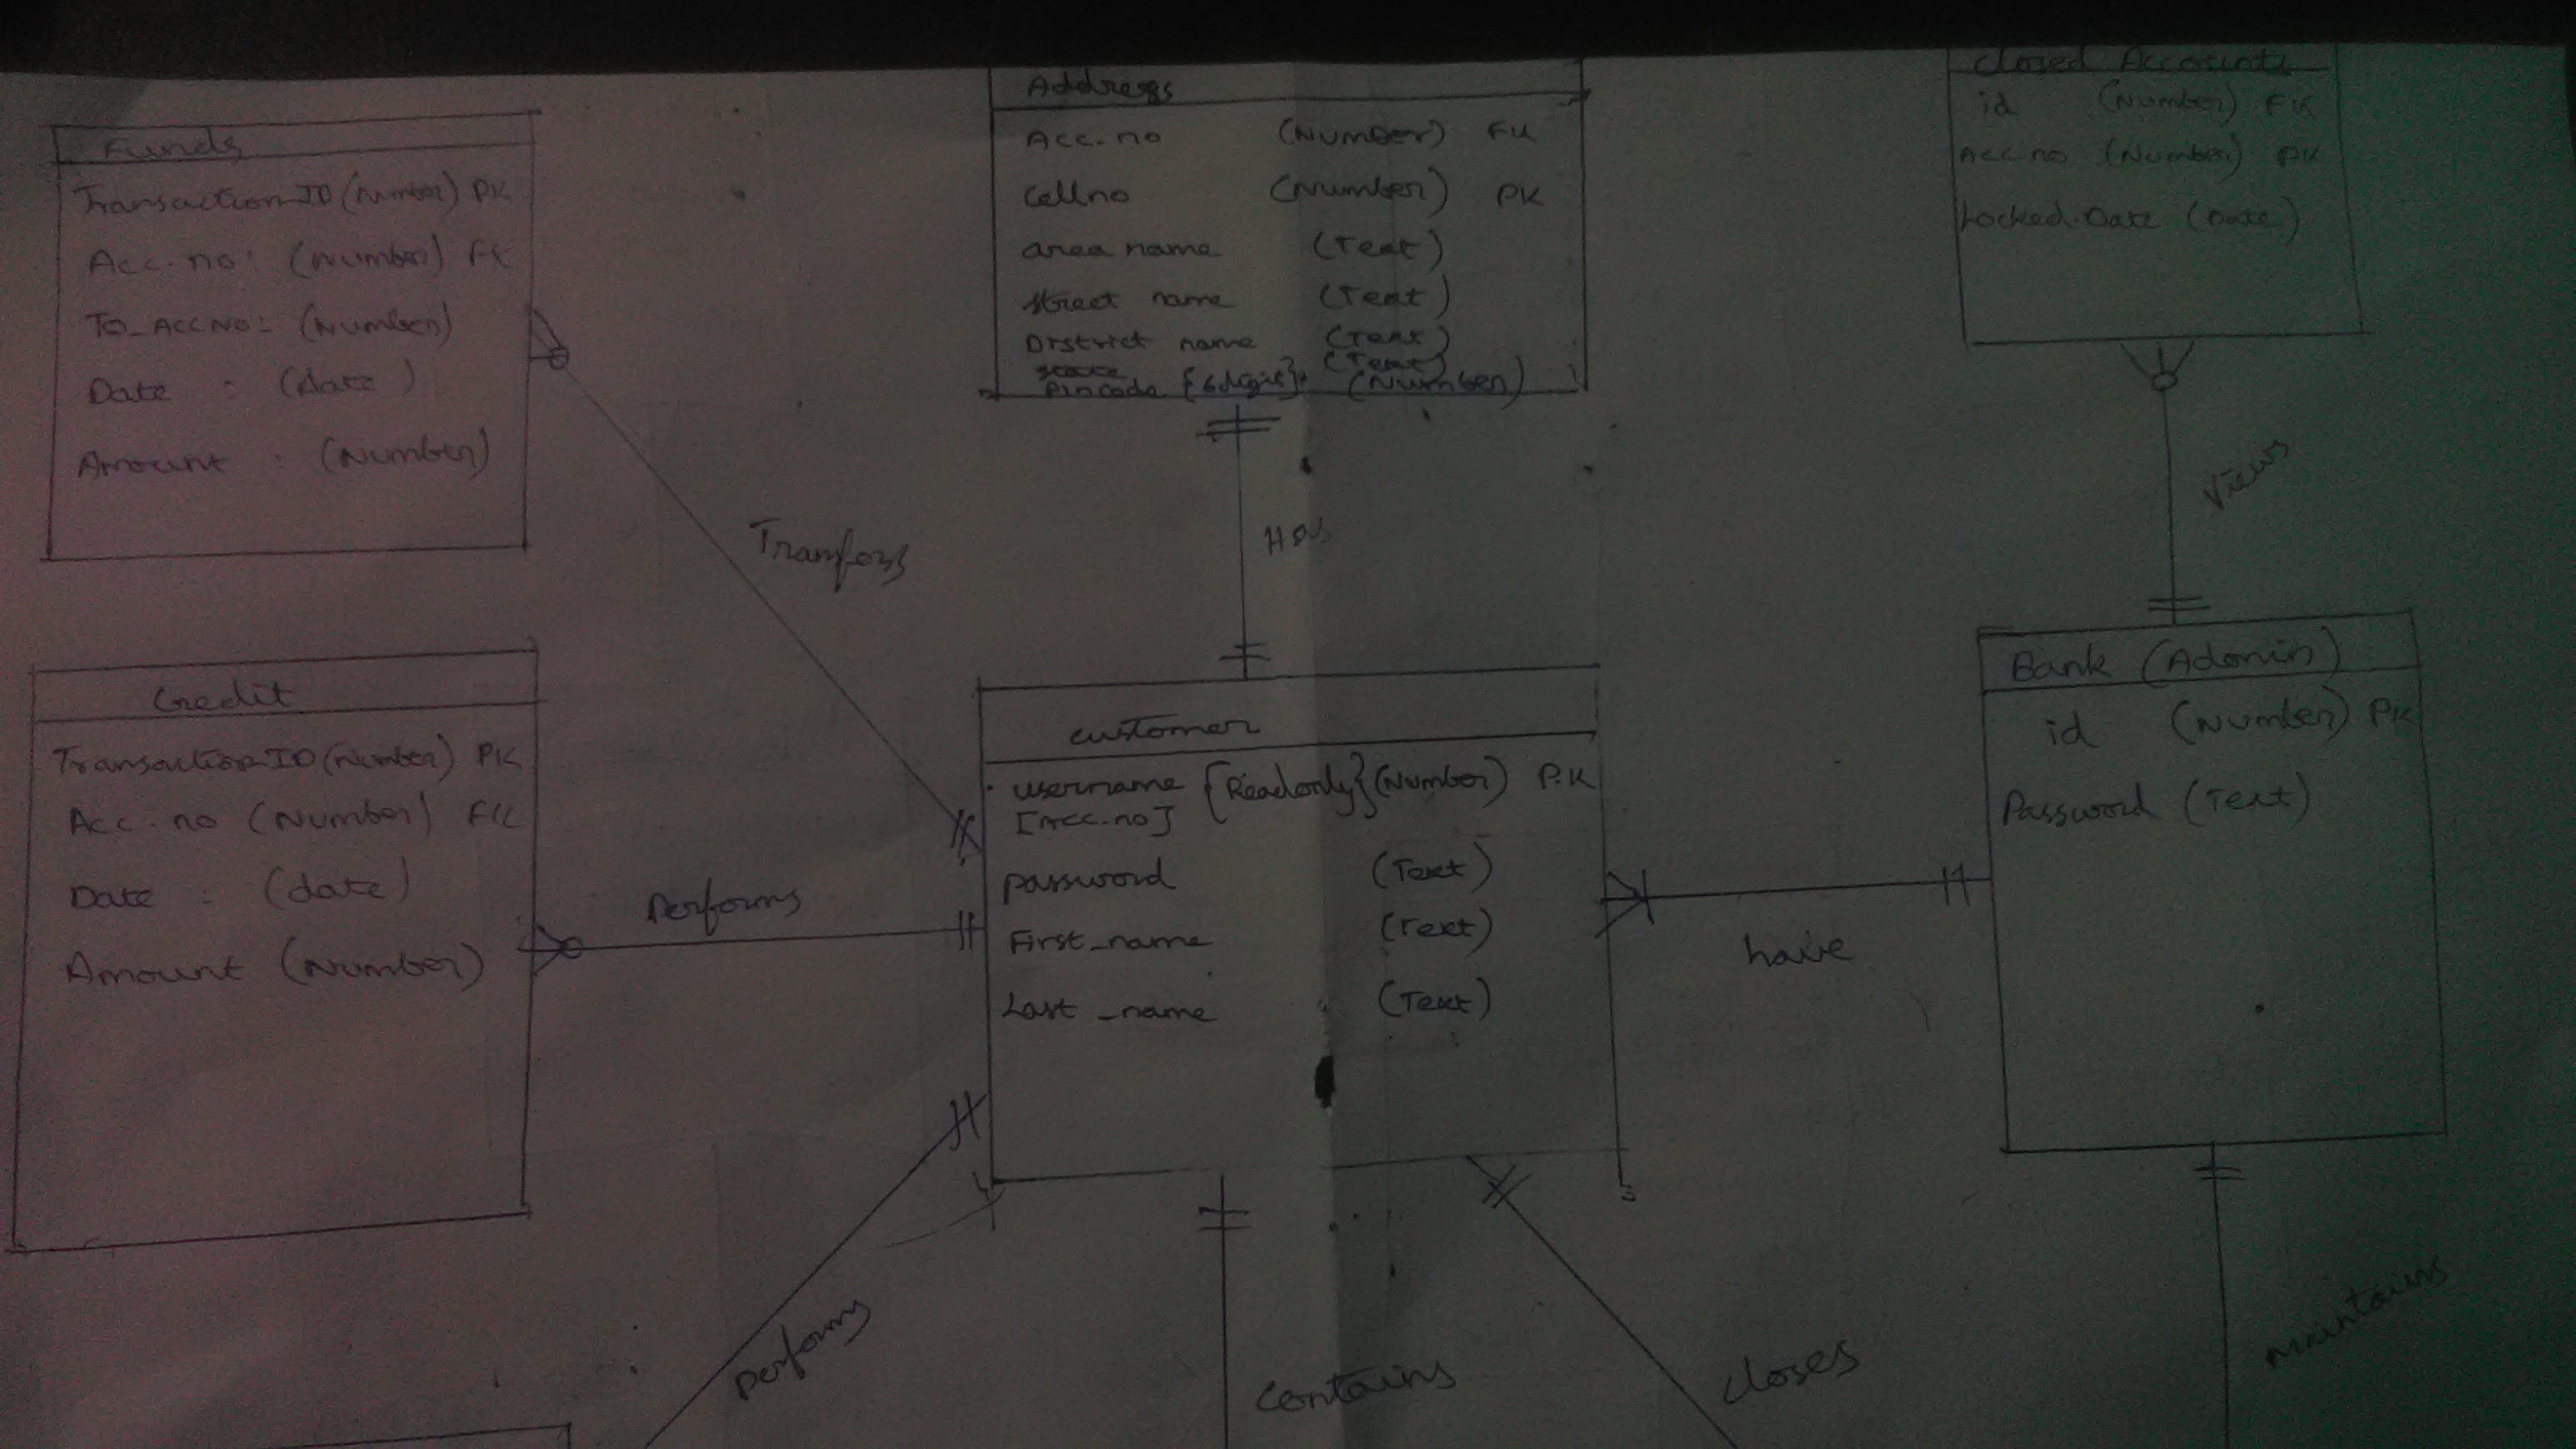 Funds
TransactionID (Number) PK
Acc. no: (Number) FK
TO_ACCNO: (Number)
Date : (date)
Amount : (Number)
Address
Acc. no (Number) FK
cellno (Number) PK
area name (Text)
street name (Text)
District name (Text)
state (Text)
Pincode {6digit} (Number)
closed Accounts
id (Number) FK
Acc.no (Number) PK
Locked-Date (Date)
Tranfers
Has
Views
Credit
TransactionID (Number) PK
Acc. no (Number) FK
Date : (date)
Amount (Number)
Performs
customer
username {Readonly} (Number) P.K
[Acc.no]
password (Text)
First_name (Text)
Last_name (Text)
have
Bank (Admin)
id (Number) PK
Password (Text)
Performs
Contains
closes
Maintains